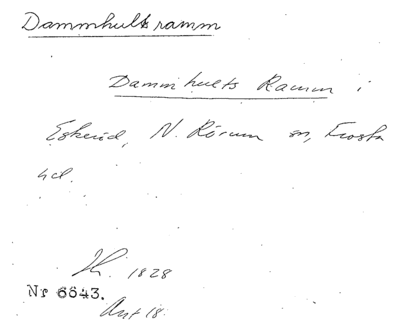 Dammhultsramm
Dammhults Ramm i
Eskeröd, N. Rörum sn, Frosta
hd.
1828
Nr 6643.
Akt 18.